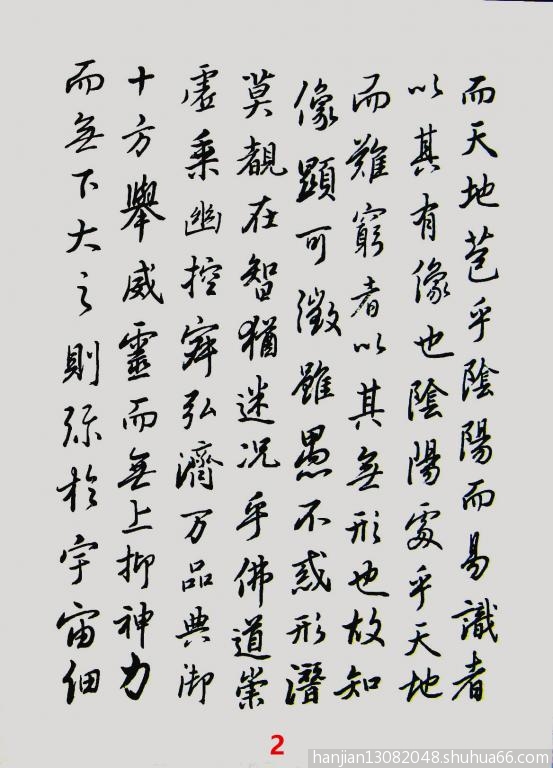 而天地苞乎陰陽而易識者
以其有像也陰陽處乎天地
而難窮者以其無形也故知
像顯可徵雖愚不惑形潛
莫覩在智猶迷況乎佛道崇
虛乘幽控寂弘濟万品典御
十方舉威靈而無上抑神力
而無下大之則弥於宇宙細
2
hanjian13082048.shuhua66.com